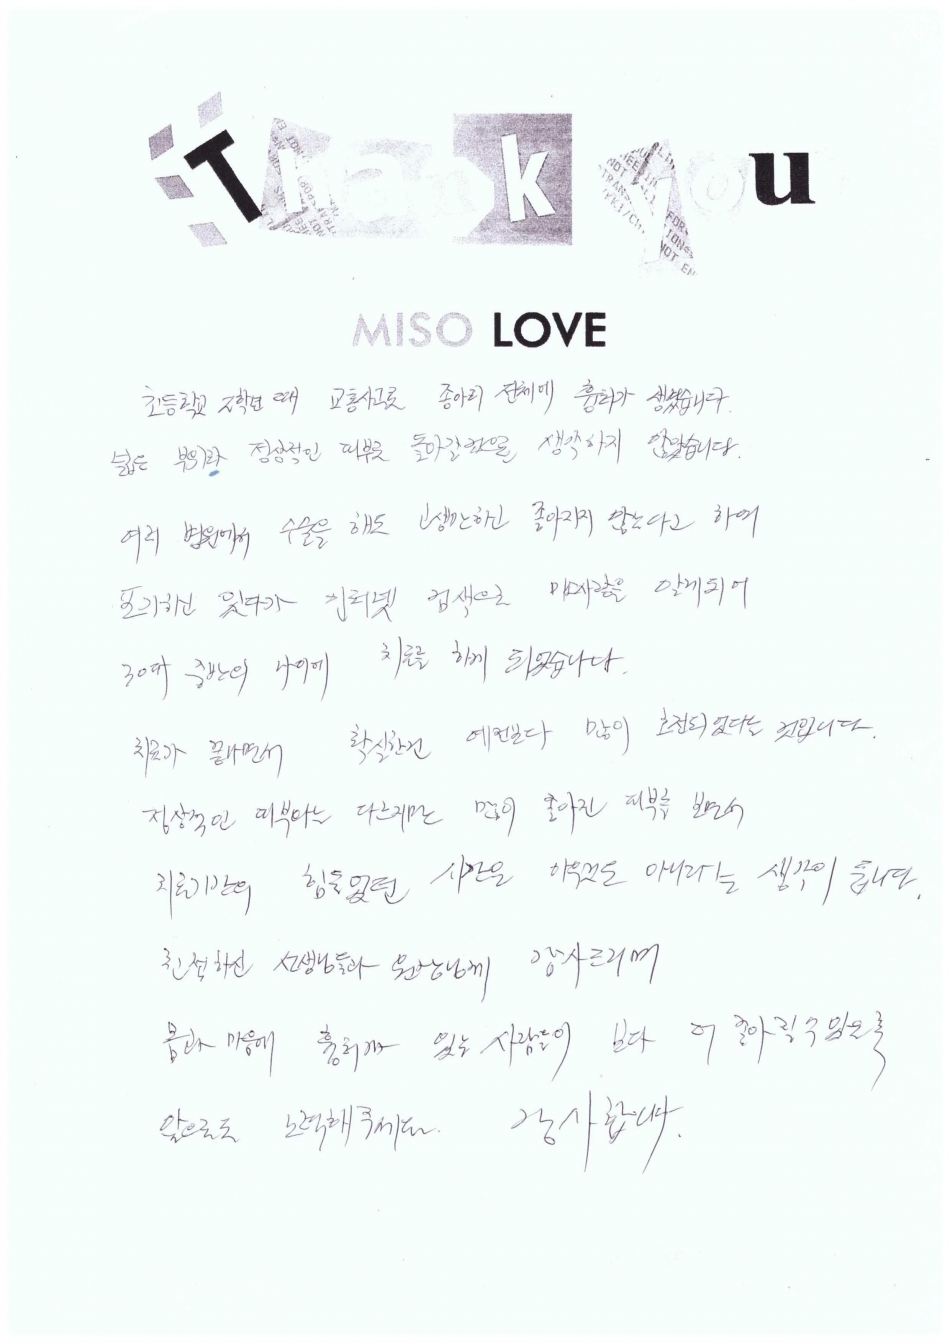 Thank you
MISO LOVE
초등학교 2학년 때 교통사고로 종아리 전체에 흉터가 생겼습니다.
넓은 부위라 정상적인 피부로 돌아갈것으로 생각하지 않았습니다.
여러 병원에서 수술을 해도 고생만하고 좋아지지 않는다고 하여
포기하고 있다가 인터넷 검색으로 미소사랑을 알게되어
30대 중반의 나이에 치료를 하게 되었습니다.
치료가 끝나면서 확실한건 예전보다 많이 호전되었다는 것입니다.
정상적인 피부와는 다르지만 많이 좋아진 피부를 보면서
치료기간의 힘들었던 시간은 아무것도 아니라는 생각이 듭니다.
친절하신 선생님들과 원장님께 감사드리며
몸과 마음에 흉터가 있는 사람들이 보다 더 좋아질 수 있도록
앞으로도 노력해주세요. 감사합니다.